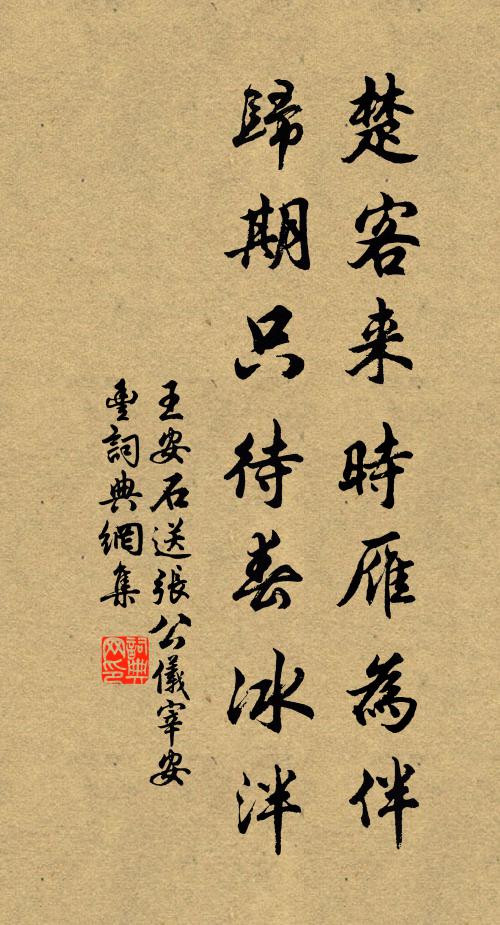 楚客来時雁為伴
歸期只待春冰泮
王安石送張公儀宰安
豊詞典網集
詞典网印